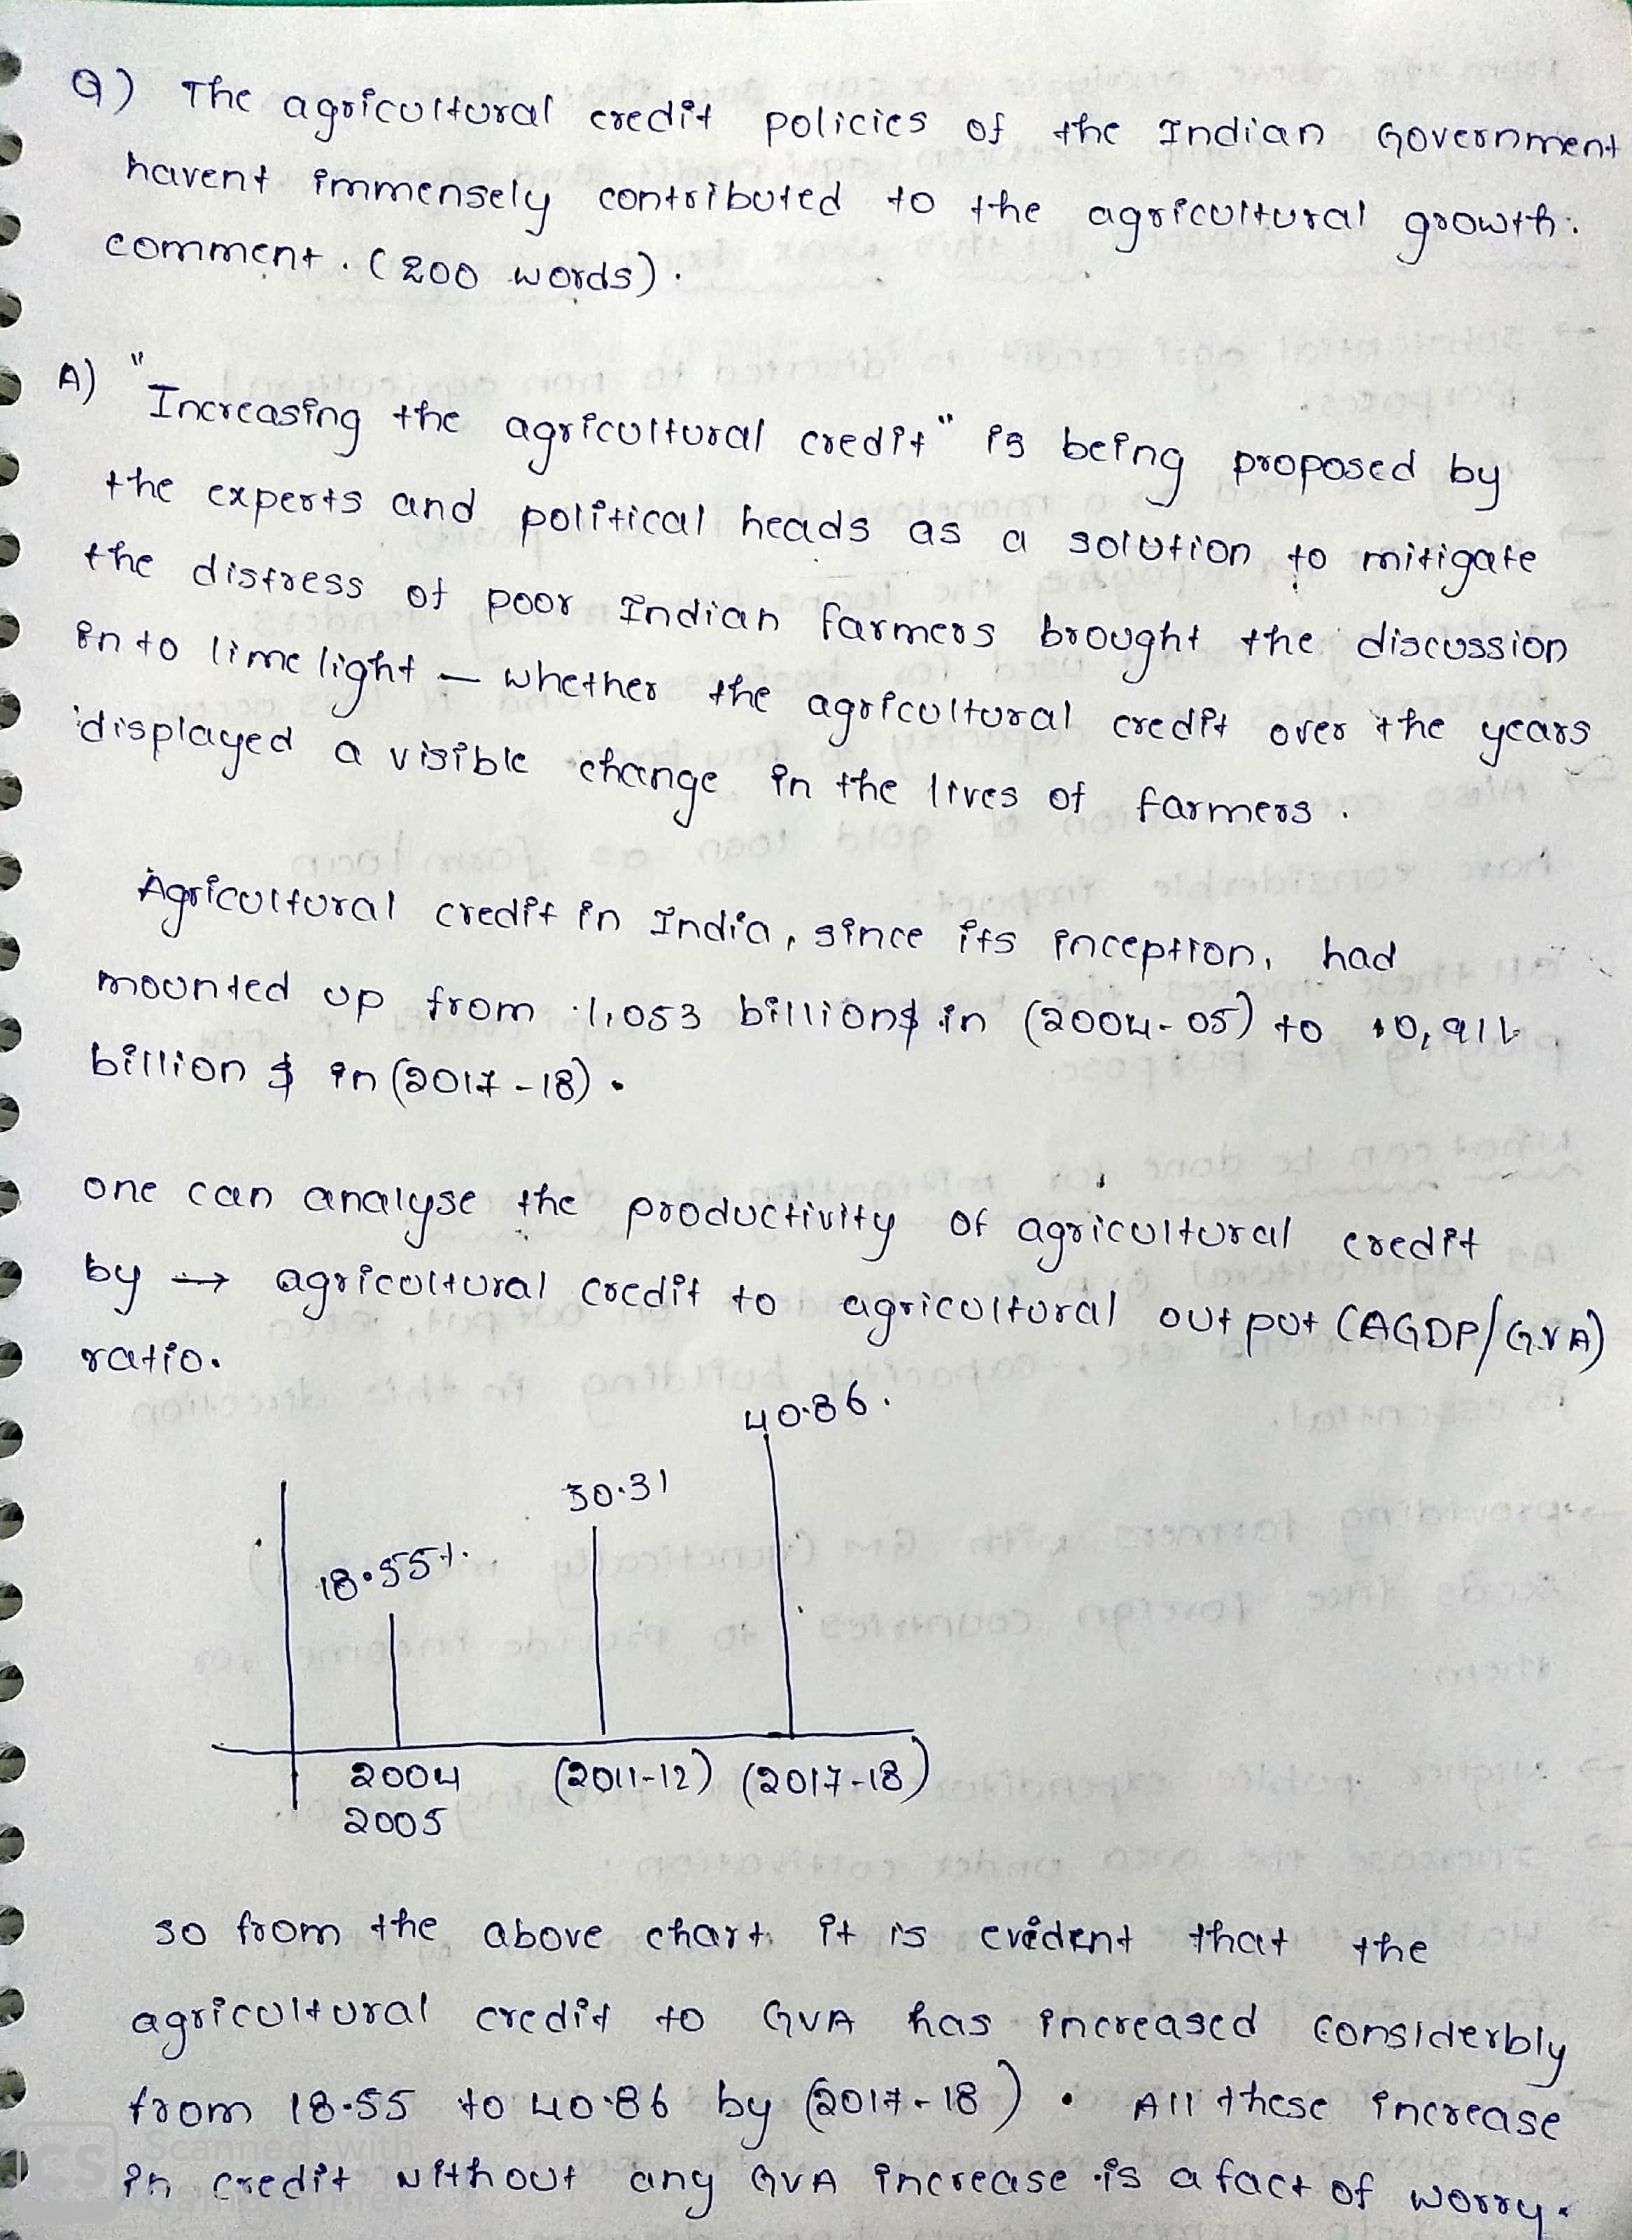 Q) The agricultural credit policies of the Indian Government
havent immensely contributed to the agricultural growth.
comment. (200 words).
A) "Increasing the agricultural credit" is being proposed by
the experts and political heads as a solution to mitigate
the distress of poor Indian farmers brought the discussion
in to lime light – whether the agricultural credit over the years
displayed a visible change in the lives of farmers.
Agricultural credit in India, since its inception, had
mounted up from 1,053 billion$ in (2004-05) to
billion $ in (2017-18).
one can analyse the productivity of agricultural credit
by → agricultural credit to agricultural output (AGDP/GVA)
ratio.
40.86.
30.31
18.55%.
2004 (2011-12) (2017-18)
2005
so from the above chart it is evident that the
agricultural credit to GVA has increased considerbly
from 18.55 to 40.86 by (2017-18). All these increase
in credit without any GVA increase is a fact of worry.
Scanned with
CS